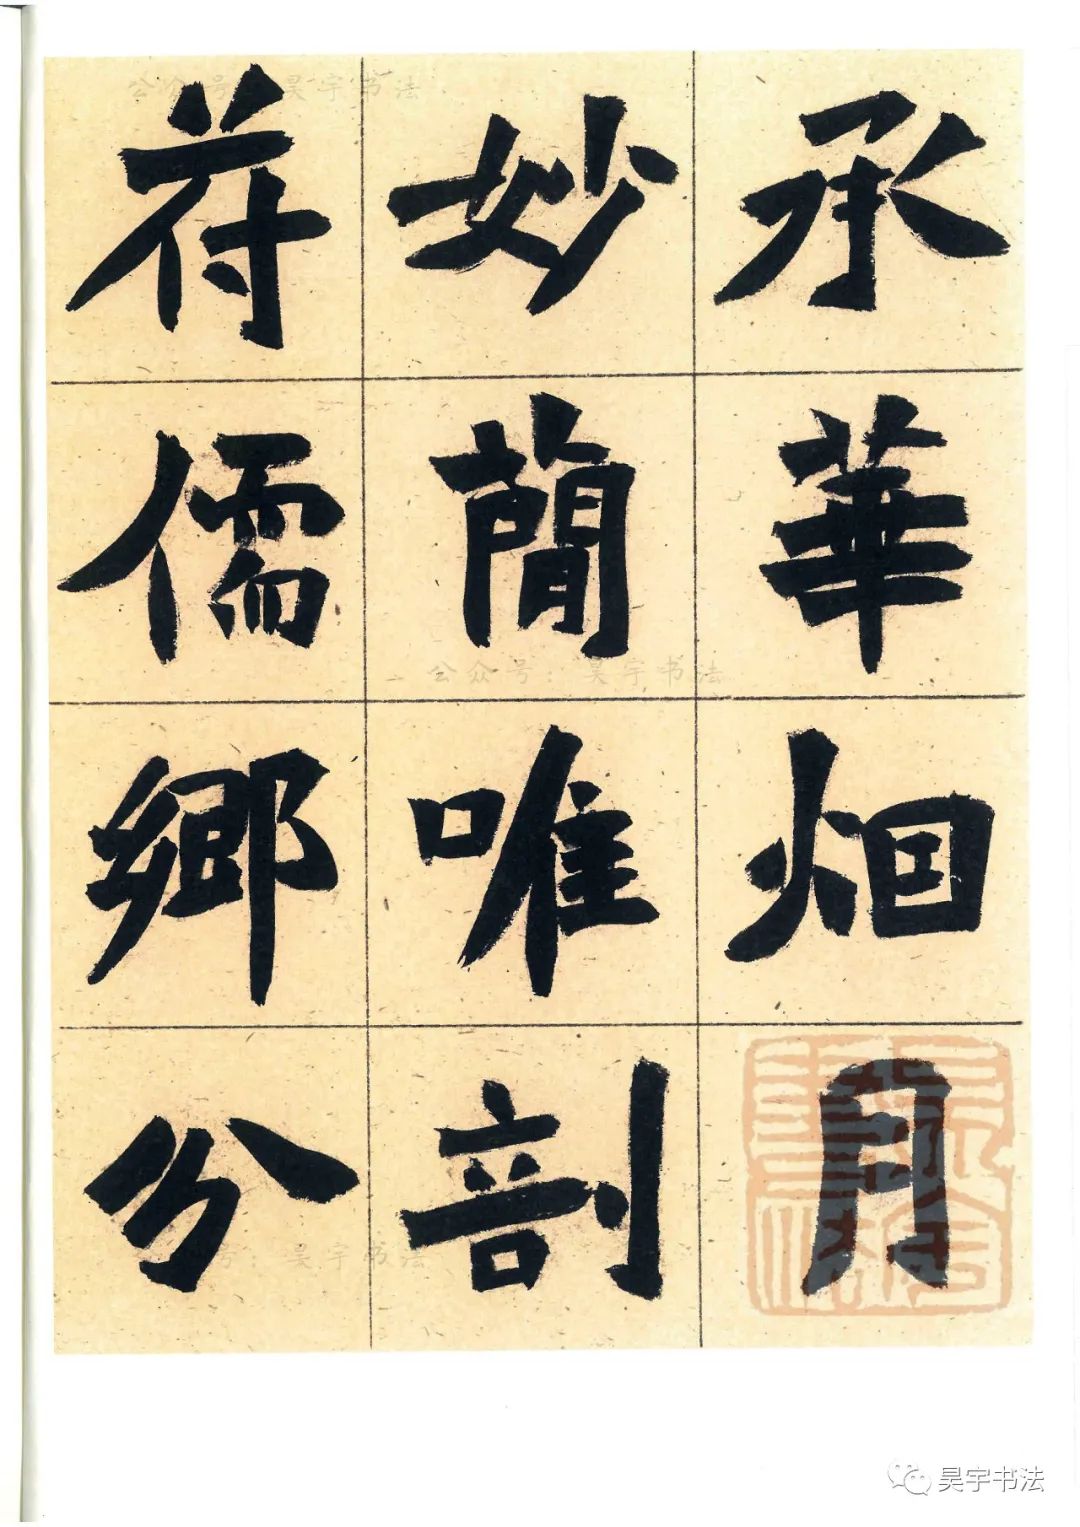 承華烟月
妙簡唯剖
符儒鄉分
公众号：昊宇书法
公众号：昊宇书法
公众号：昊宇书法
昊宇书法